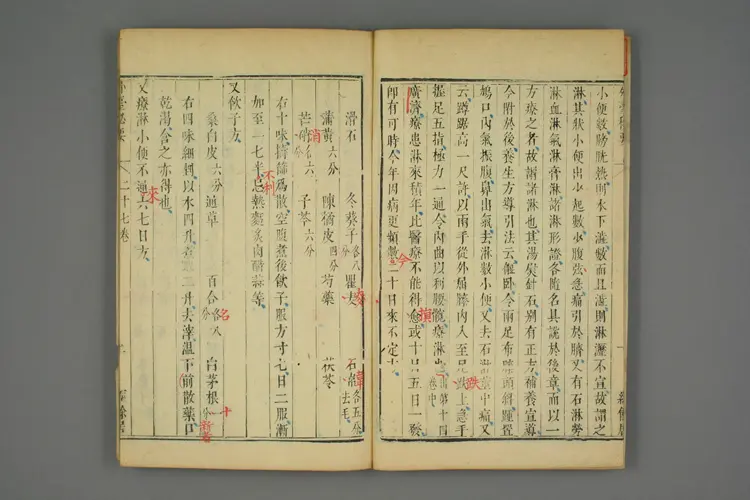 小便數膀胱熱則水下澁數而且澁則淋瀝不宣故謂之
淋其狀小便出少起數小腹弦急痛引於臍又有石淋勞
淋血淋氣淋膏淋諸淋形證各隨名具說於後章而以一
方療之者故謂諸淋也其湯熨針石別有正方補養宣導
今附於後養生方導引法云偃臥令兩足布膝頭斜踵置
鳩口內氣振腹鼻出氣去淋數小便又去石淋莖中痛又
云蹲踞高一尺許以兩手從外屈膝內入至足趺上急手
握足五指極力一通令內曲以利腰髖療淋出第十四卷中
廣濟療患淋來積年比醫療不能得愈或十日五日一發
即有可時今年因病更頻數二十日來不定方
滑石 冬葵子各八分 瞿麥 石韋各五分去毛
蒲黃六分 陳橘皮四分 芍藥 茯苓
芒硝各六分 子芩六分
右十味擣篩爲散空腹煮後飲子服方寸匕日二服漸
加至一七半忌熱麵炙肉醋蒜等
又飲子方
桑白皮六分 通草 百合各八分 白茅根一分
右四味細剉以水四升煮取二升去滓溫下前散藥口
乾渴含之亦得也
又療淋小便不通六七日方
二十七卷